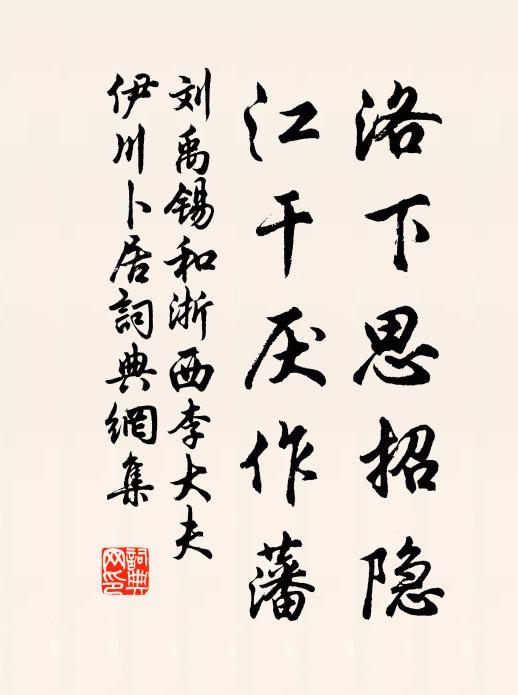 洛下思招隐
江干厌作藩
刘禹锡和浙西李大夫
伊川卜居詞典網集
詞典網印